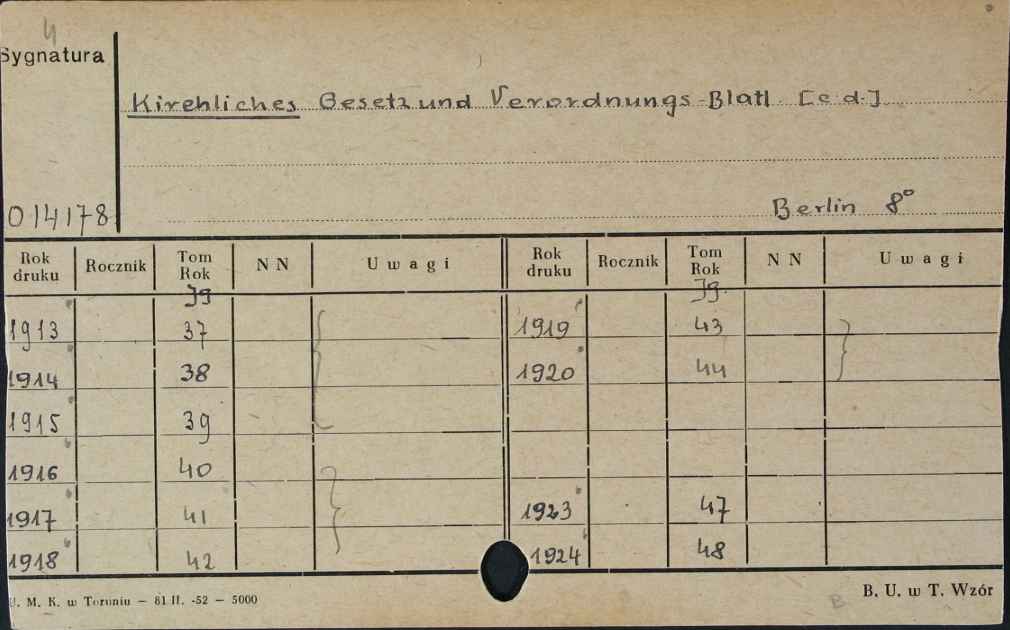 4
Sygnatura
Kirchliches Gesetz und Verordnungs-Blatt [c.d.]
014178
Berlin 8°
Rok druku Rocznik Tom Rok NN Uwagi Rok druku Rocznik Tom Rok NN Uwagi
Jg Jg.
1913 37 1919 43
1914 38 1920 44
1915 39
1916 40
1917 41 1923 47
1918 42 1924 48
U. M. K. w Toruniu — 81 II. -52 — 5000
B. U. w T. Wzór
B